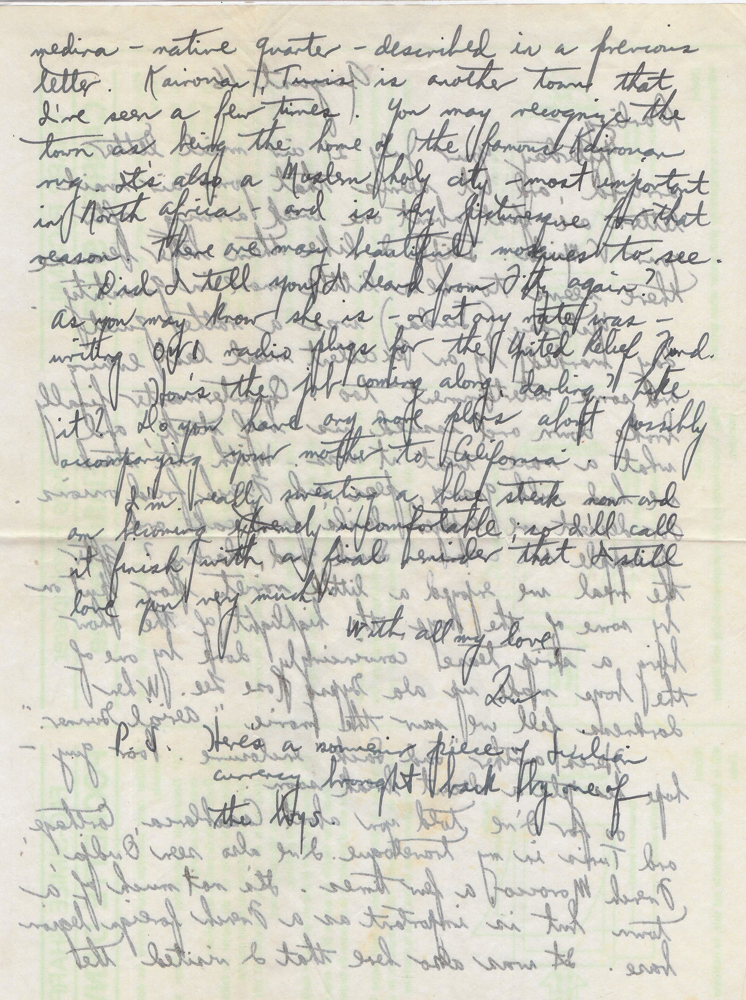 medina - native quarter - described in a previous
letter. Kairouan, Tunis is another town that
I've seen a few times. You may recognize the
town as being the home of the famous Kairouan
rug. It's also a Moslem holy city - most important
in North Africa - and is very picturesque for that
reason. There are many beautiful mosques to see.
Did I tell you I'd heard from again?
As you may know she is - or at any rate was -
writing radio plugs for the United Relief Fund.
How's the job coming along, darling? Like
it? Do you have any more plans about possibly
accompanying your mother to California.
I'm really sweating a blue streak now and
am becoming extremely uncomfortable, so I'll call
it finish with a final reminder that I still
love you very much.
With all my love,
Lou
P.S. Here's a souvenir piece of Sicilian
currency brought back by one of
the boys